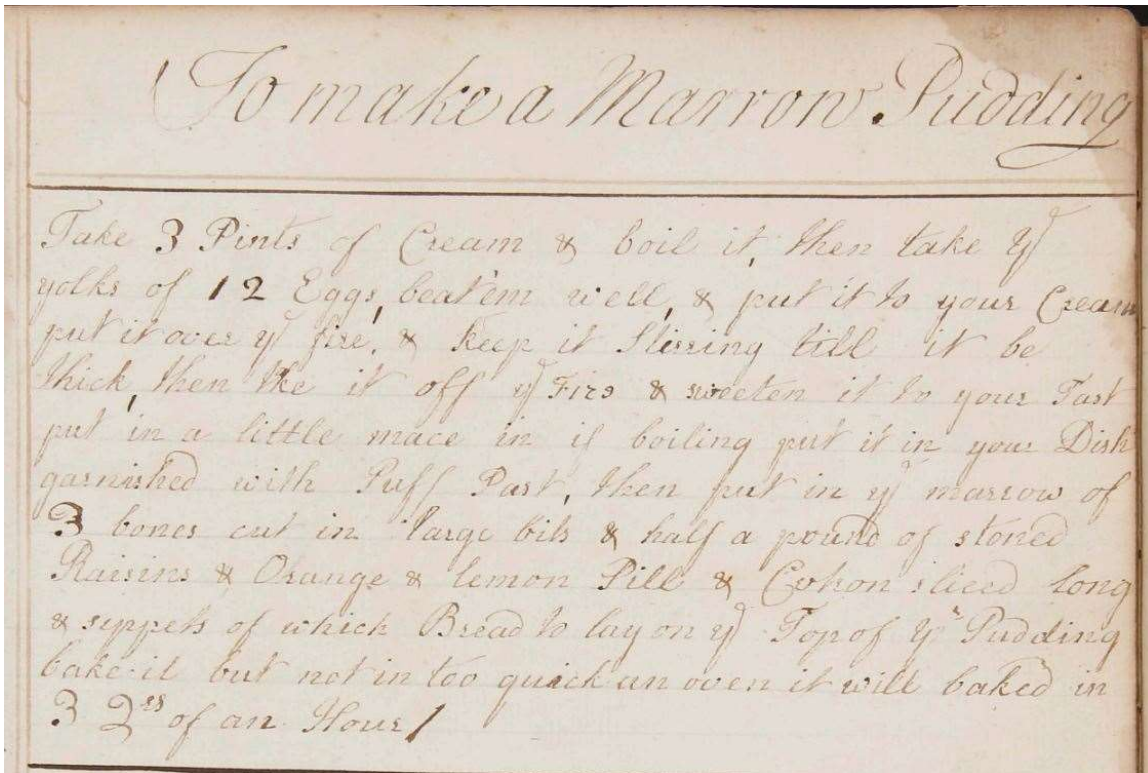 To make a Marrow Pudding
Take 3 Pints of Cream & boil it, then take ye
yolks of 12 Eggs, beat'em well, & put it to your Cream
put it over ye fire, & keep it Stirring till it be
thick, then tke it off ye Fire & sweeten it to your Tast
put in a little mace in if boiling put it in your Dish
garnished with Puff Past, then put in ye marrow of
3 bones cut in large bits & half a pound of stoned
Raisins & Orange & lemon Pill & Cytron sliced long
& syppets of which Bread to lay on ye Top of ye Pudding
bake it but not in too quick an oven it will baked in
3 2rs of an Hour/